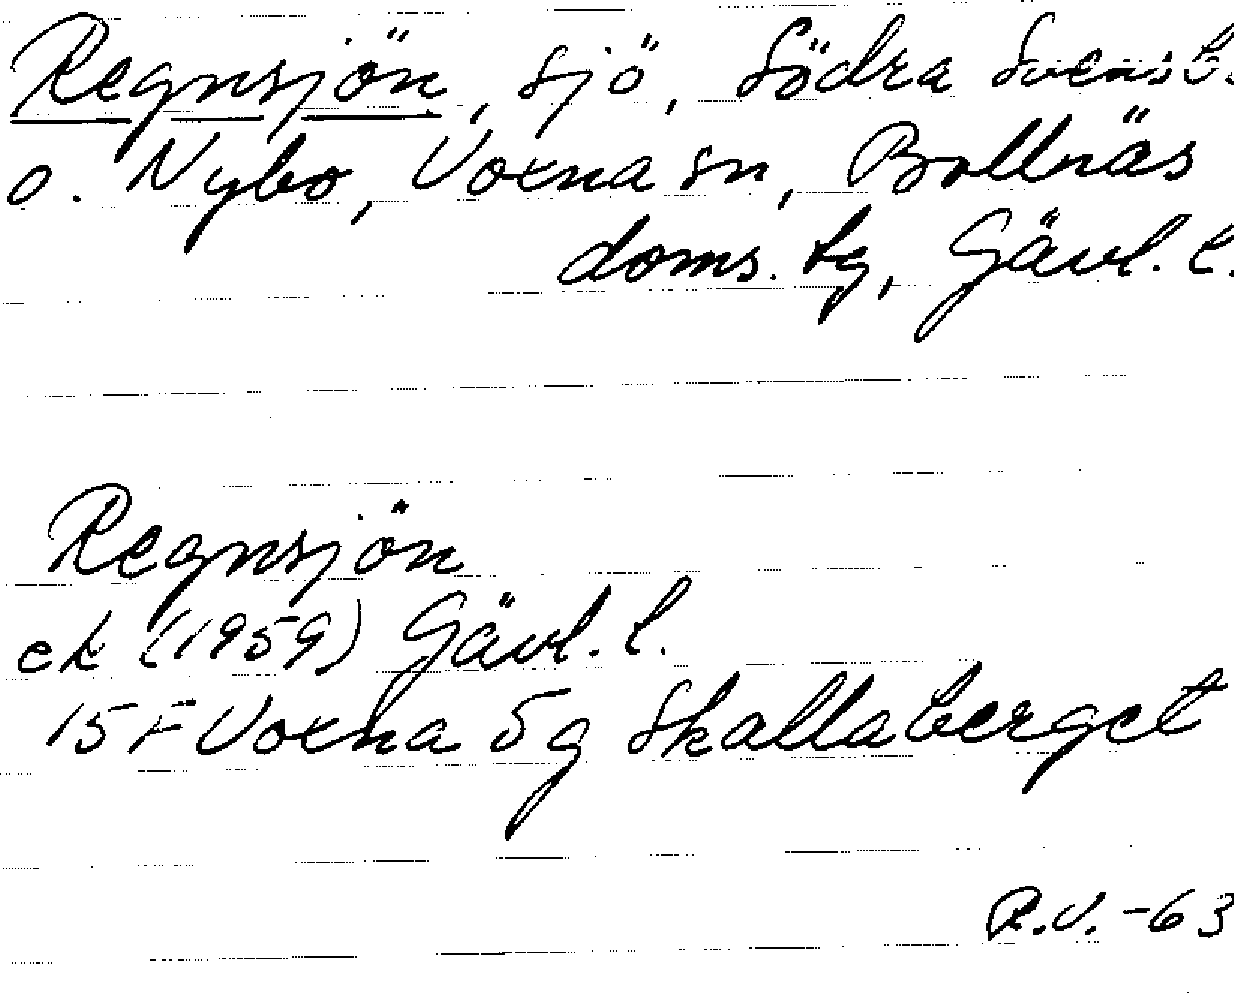 Regnsjön, sjö, Södra Svensb.
o. Nybo, Voxna sn, Bollnäs
doms. tg, Gävl. l.
Regnsjön
ek (1959) Gävl. l.
15F Voxna 5g Skallaberget
R.V. -63